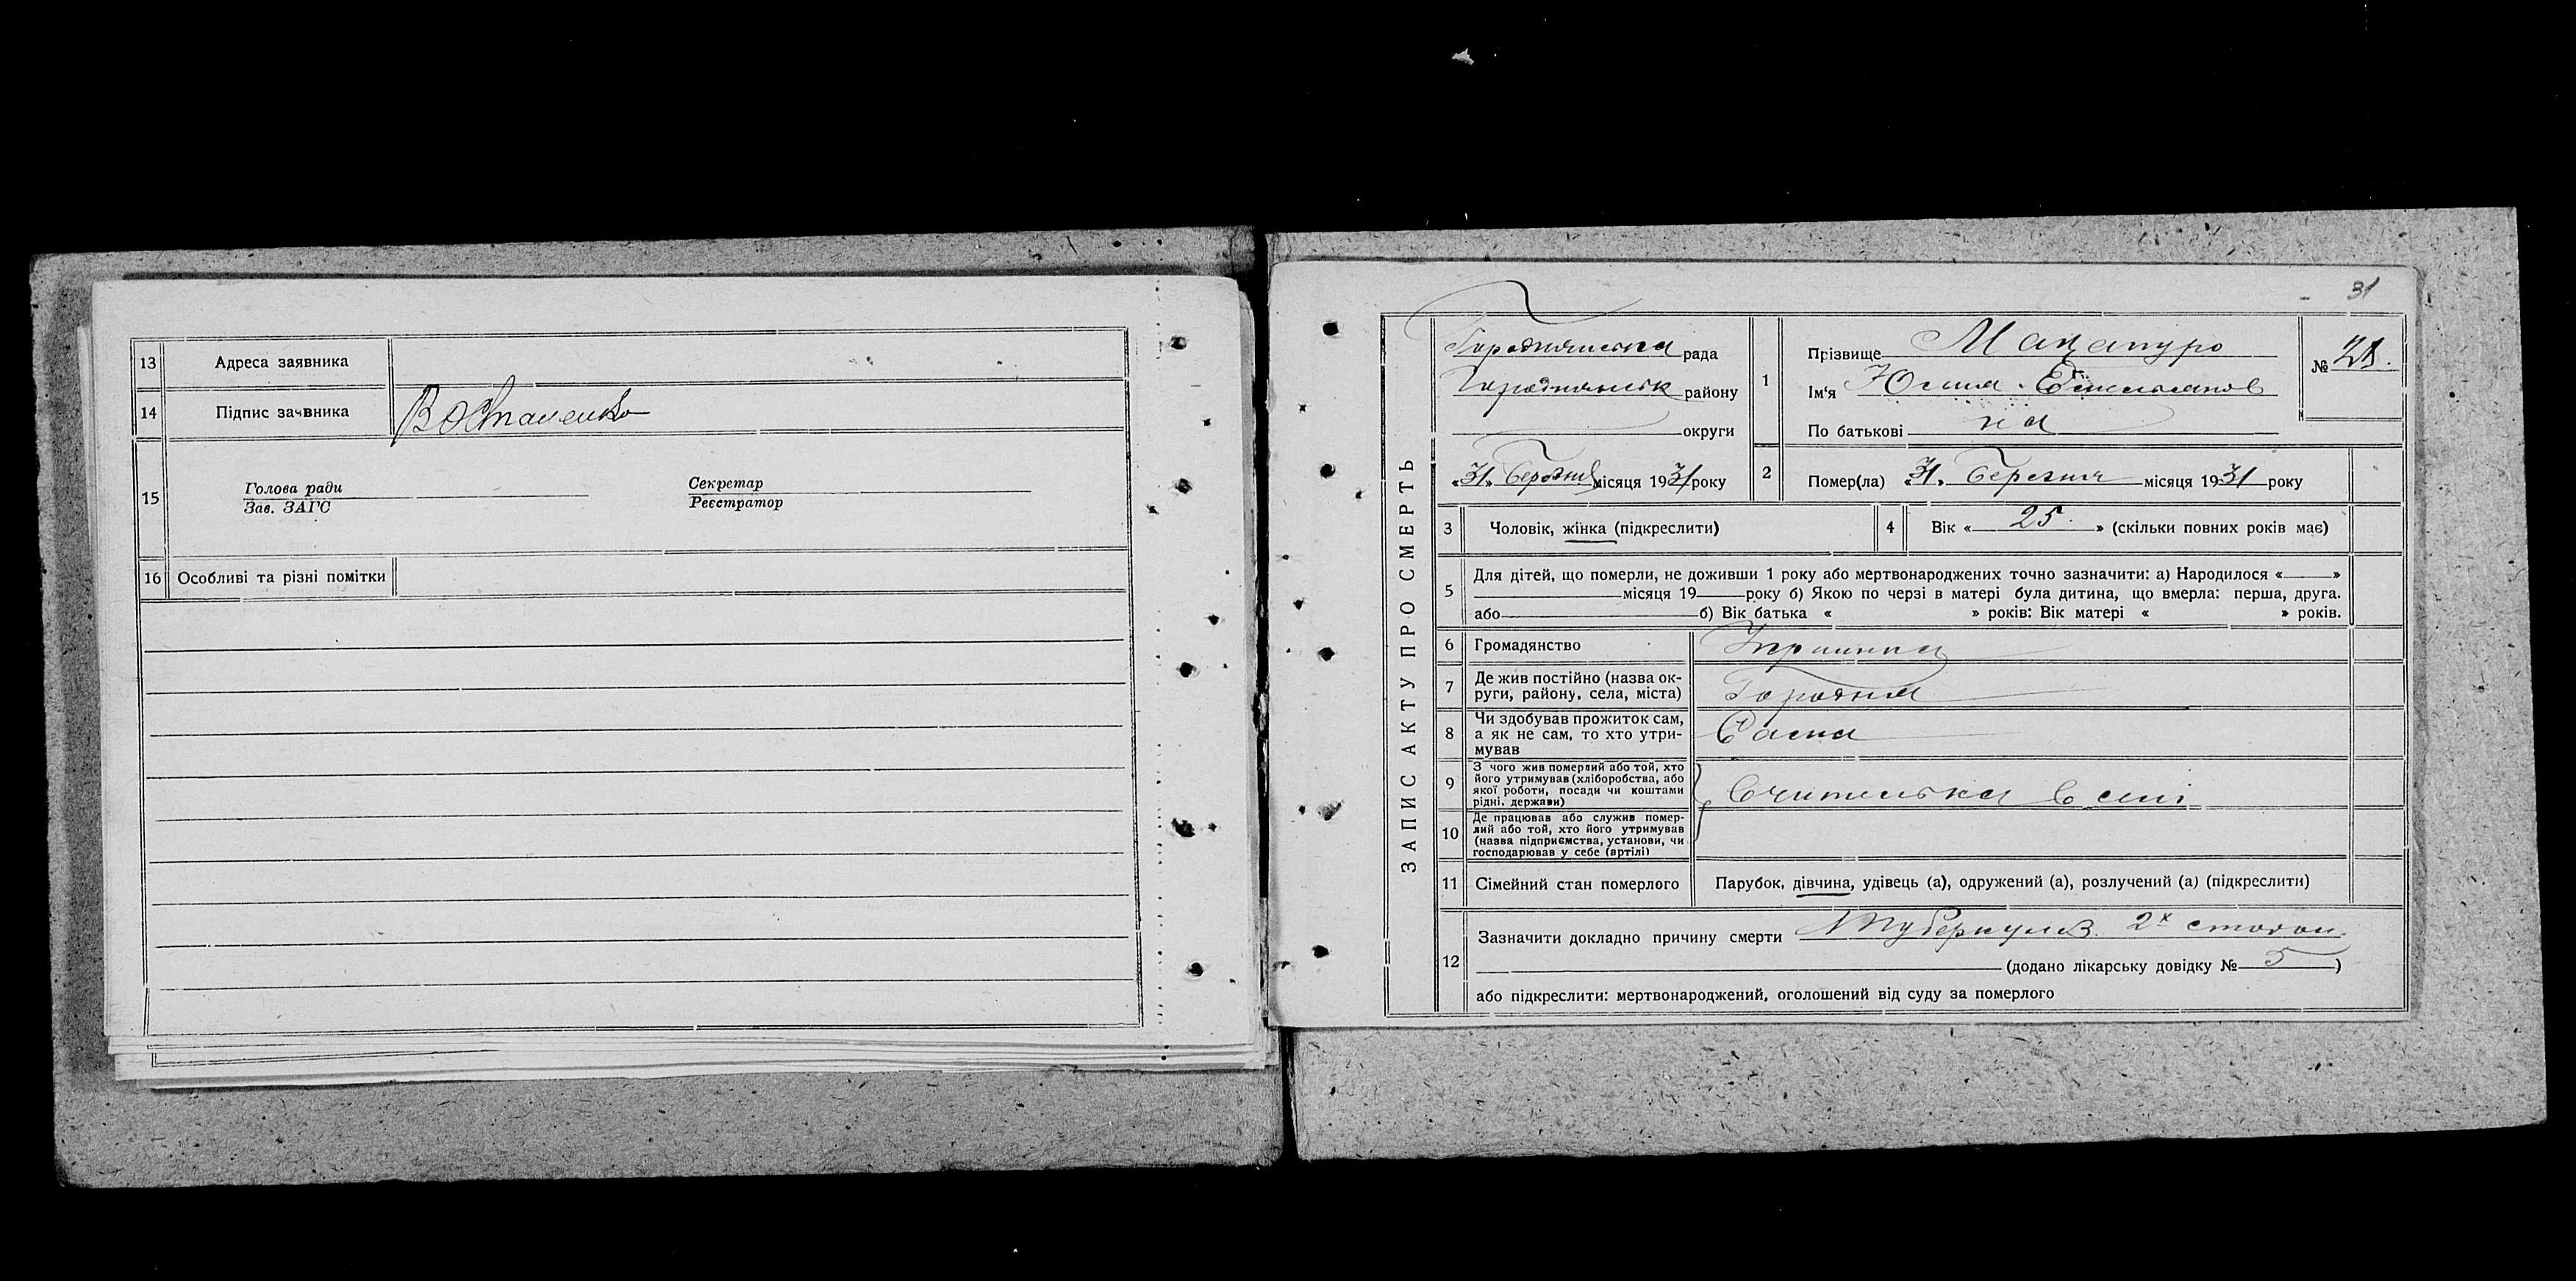 13 Адреса заявника
14 Підпис заявника ВОстаненко
15 Голова ради Секретар
Зав. ЗАГС Реєстратор
16 Особливі та різні помітки
31
ЗАПИС АКТУ ПРО СМЕРТЬ
Городнянська рада
Городнянськ району
округи
«31» Березня місяця 1931 року
1 Прізвище Мацапуро
Ім'я Юлия Емельянов
По батькові на
№ 28.
2 Помер(ла) «31» Березня місяця 1931 року
3 Чоловік, жінка (підкреслити)
4 Вік « 25. » (скільки повних років має)
5 Для дітей, що померли, не доживши 1 року або мертвонароджених точно зазначити: а) Народилося « »
місяця 19 року б) Якою по черзі в матері була дитина, що вмерла: перша, друга.
або б) Вік батька « » років: Вік матері « » років.
6 Громадянство Украинка
7 Де жив постійно (назва ок-
руги, району, села, міста) Городня
8 Чи здобував прожиток сам,
а як не сам, то хто утри-
мував Сама
9 З чого жив померлий або той, хто
його утримував (хліборобства, або
якої роботи, посади чи коштами
рідні, держави) Вчителька в селі
10 Де працював або служив помер-
лий або той, хто його утримував
(назва підприємства, установи, чи
господарював у себе (артілі)
11 Сімейний стан померлого Парубок, дівчина, удівець (а), одружений (а), розлучений (а) (підкреслити)
12 Зазначити докладно причину смерти Туберкулез 2х сторон.
(додано лікарську довідку № 5 )
або підкреслити: мертвонароджений, оголошений від суду за померлого